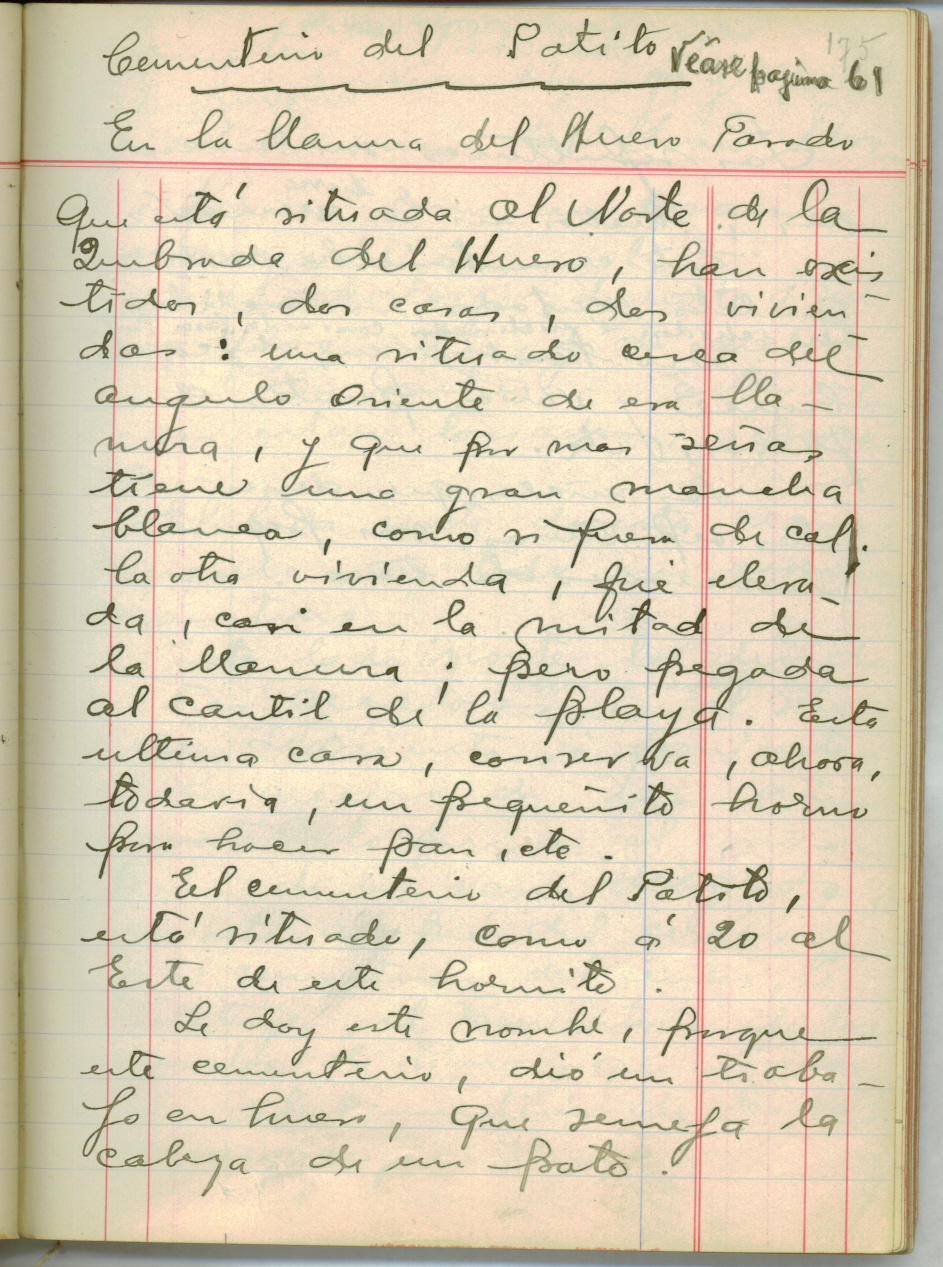 Cementerio del Patito Véase pagina 61
175
En la llanura del Hueso Parado
Que está situada al Norte de la
Quebrada del Hueso, han exis
tidos, dos casas, dos vivien-
das: una situado cerca del
angulo Oriente de esa lla-
nura, y que por mas señas
tiene una gran mancha
blanca, como si fuera de cal.
la otra vivienda, fué eleva-
da, casi en la mitad de
la llanura; pero pegada
al cantil de la playa. Esta
ultima casa, conserva, ahora,
todavia, un pequeñito horno
para hacer pan, etc.
El cementerio del Patito,
está situado, como á 20 al
Este de este hornito.
Le doy este nombre, porque
este cementerio, dió un traba-
jo en hueso, que semeja la
cabeza de un pato.